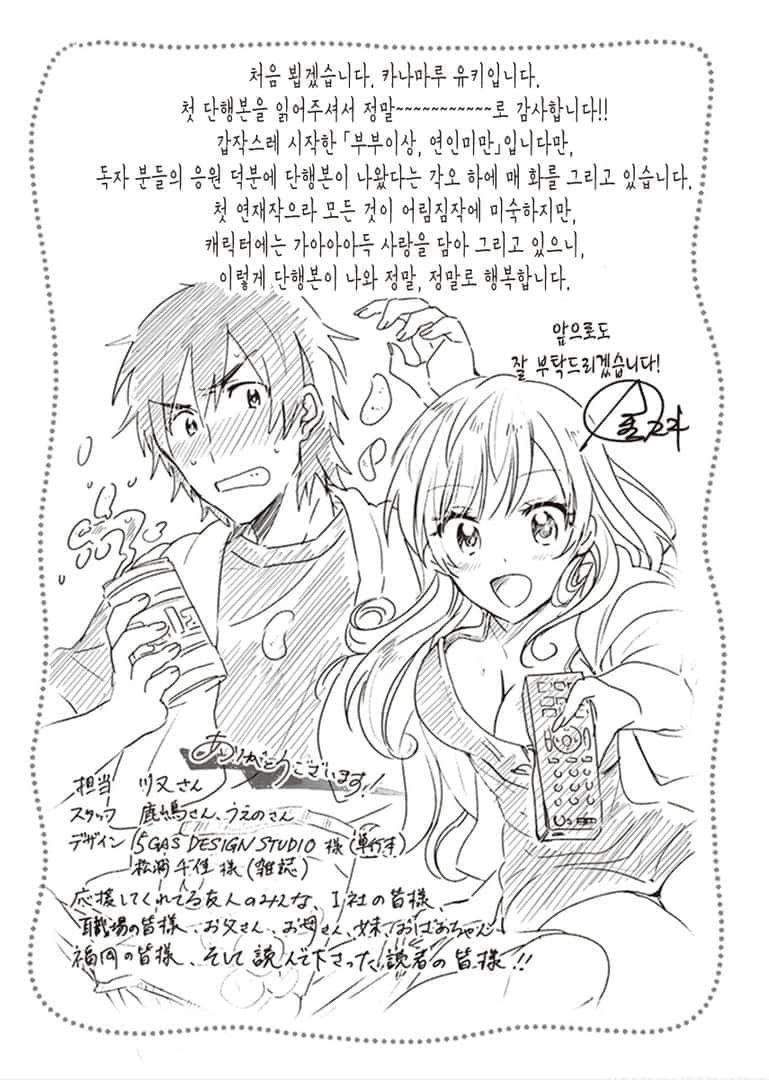 처음 뵙겠습니다. 카나마루 유키입니다.
첫 단행본을 읽어주셔서 정말~~~~~~~~~~~로 감사합니다!!
갑작스레 시작한 「부부이상, 연인미만」입니다만,
독자 분들의 응원 덕분에 단행본이 나왔다는 각오 하에 매 화를 그리고 있습니다.
첫 연재작으라 모든 것이 어림짐작에 미숙하지만,
캐릭터에는 가아아아득 사랑을 담아 그리고 있으니,
이렇게 단행본이 나와 정말, 정말로 행복합니다.
앞으로도
잘 부탁드리겠습니다!
ありがとうございます!
担当 川又さん
スタッフ 鹿嶋さん、うえのさん
デザイン 5GAS DESIGN STUDIO 様(単行本)
松岡千佳 様(雑誌)
応援してくれてる友人のみんな、I社の皆様、
職場の皆様、お父さん、お母さん、妹、おばあちゃん
福岡の皆様、そして読んで下さった読者の皆様!!